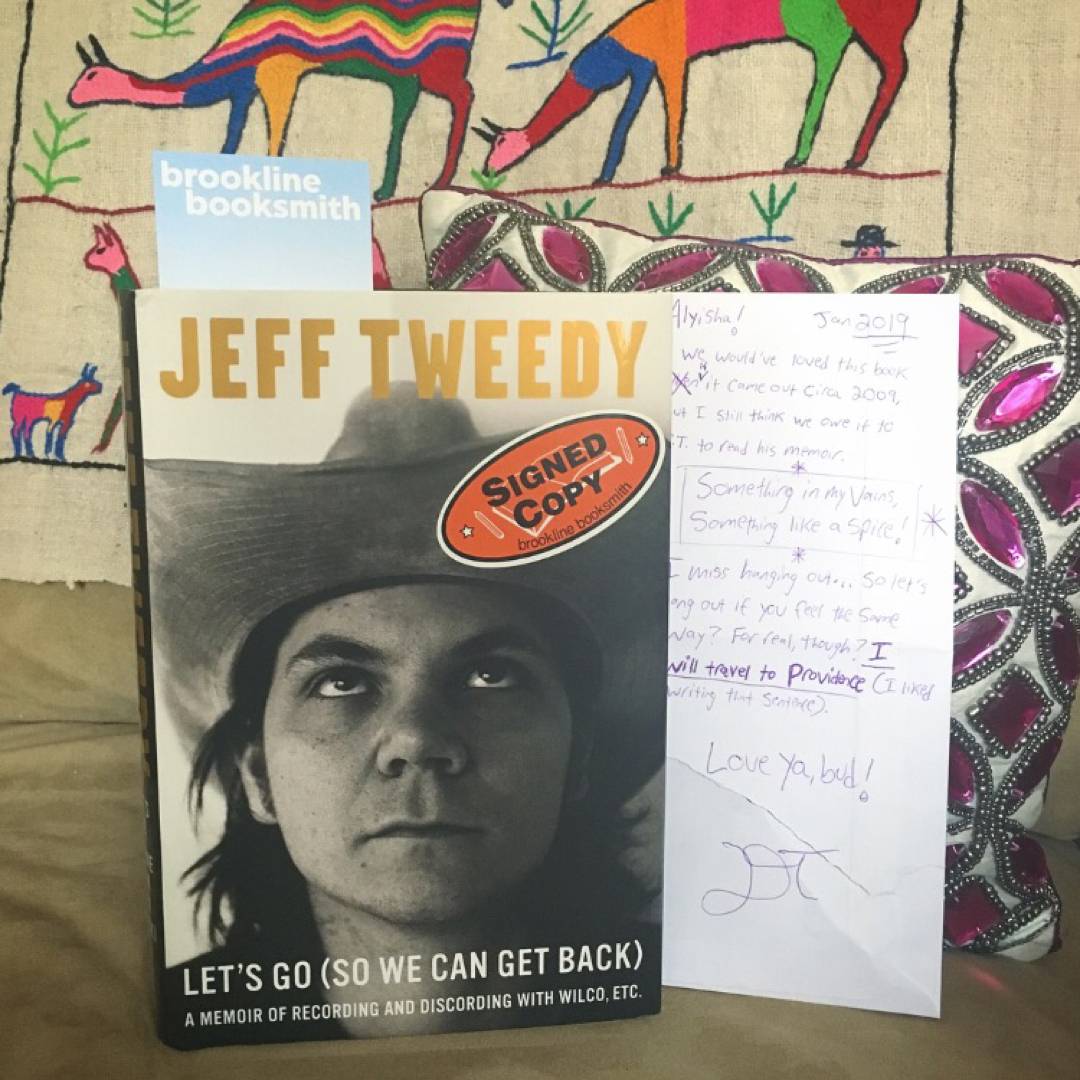 brookline
booksmith
JEFF TWEEDY
SIGNED
COPY
brookline booksmith
LET'S GO (SO WE CAN GET BACK)
A MEMOIR OF RECORDING AND DISCORDING WITH WILCO, ETC.
Alyisha! Jan 2019
We would've loved this book
it came out circa 2009,
I still think we owe it to
T. to read his memoir.
Something in my Vains,
Something like a Spice!
I miss hanging out... So let's
out if you feel the same
way? For real, though? I
will travel to Providence (I liked
writing that sentence).
Love ya, bud!
DT